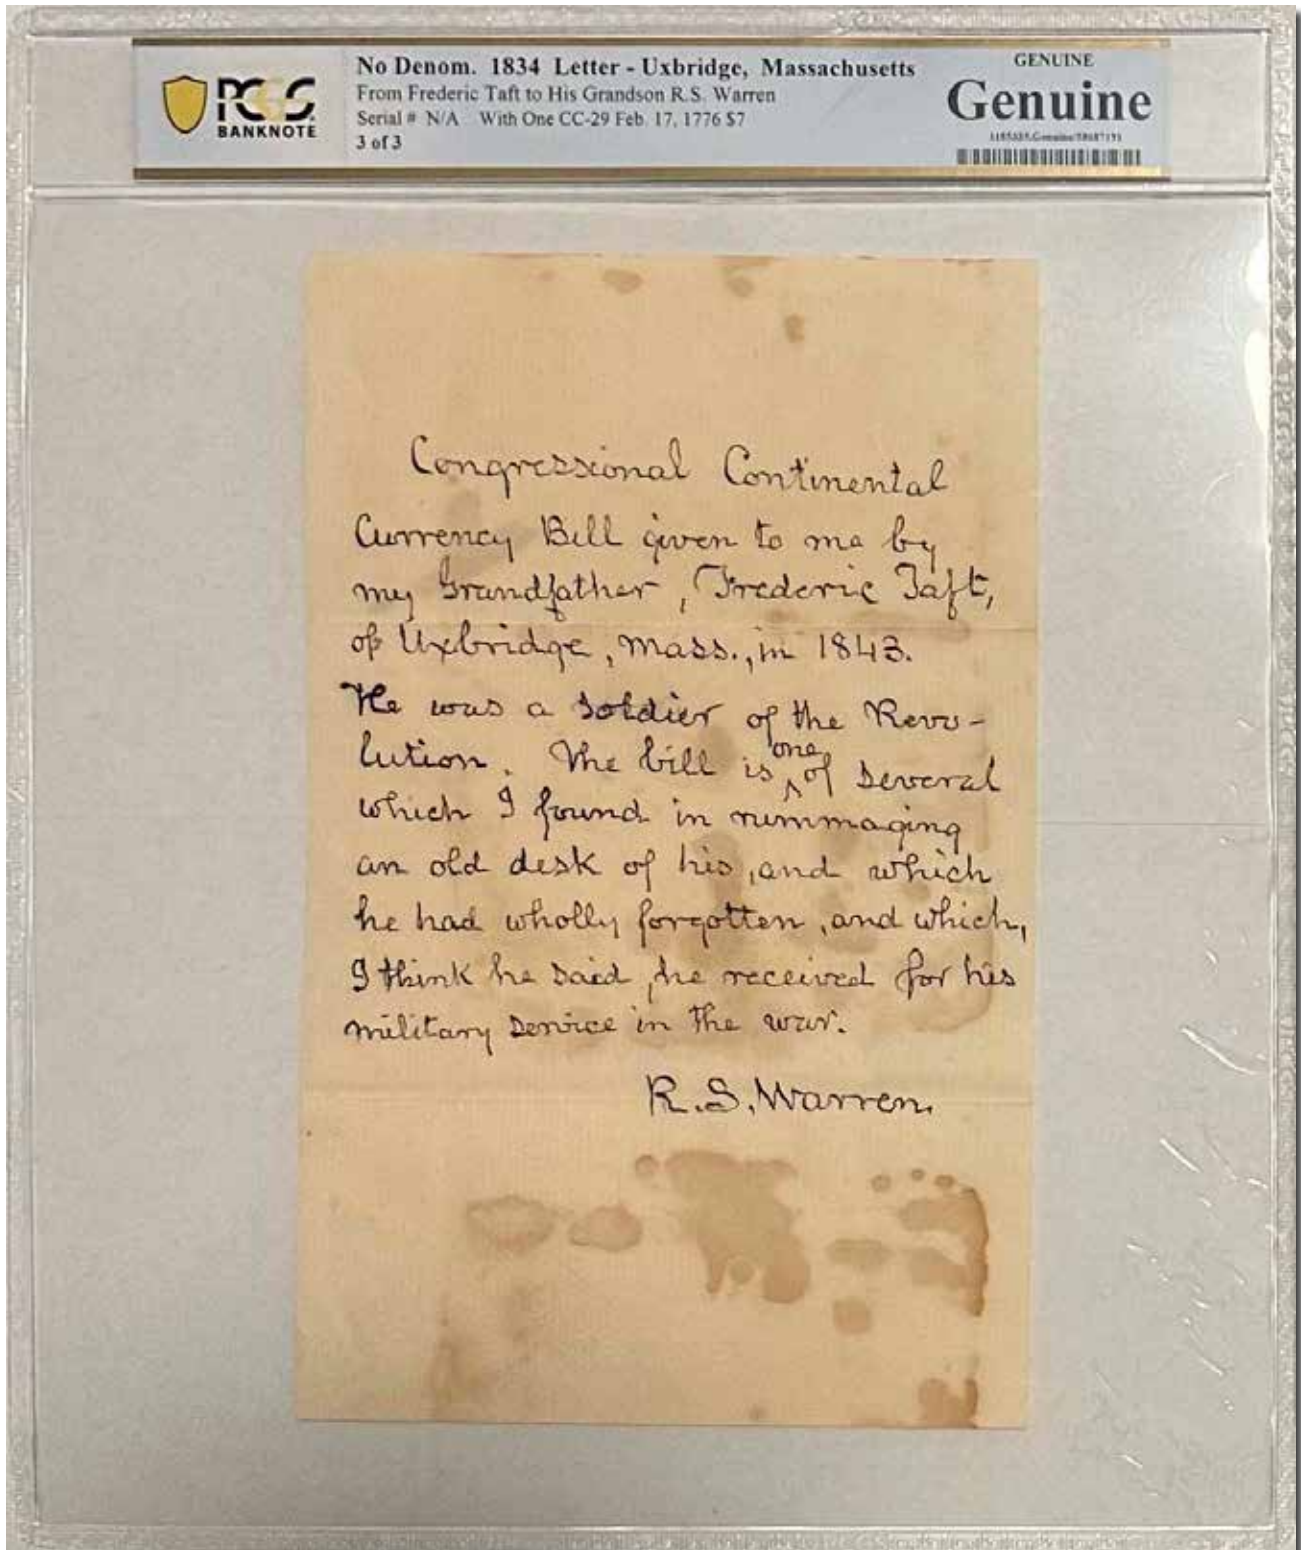 PCGS
BANKNOTE
No Denom. 1834 Letter - Uxbridge, Massachusetts
From Frederic Taft to His Grandson R.S. Warren
Serial # N/A With One CC-29 Feb. 17, 1776 $7
3 of 3
GENUINE
Genuine
Congressional Continental
Currency Bill given to me by
my Grandfather, Frederic Taft,
of Uxbridge, Mass., in 1843.
He was a soldier of the Revo-
lution. The bill is one of several
which I found in rummaging
an old desk of his, and which
he had wholly forgotten, and which,
I think he said, he received for his
military service in the war.
R.S. Warren.